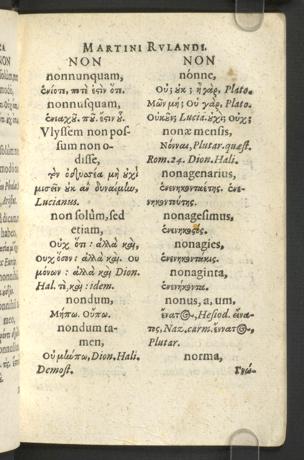 MARTINI RVLANDI.
NON
nonnunquam,
ἐνίοτι, ποτὲ ἐςὶν ὅτι.
nonnusquam,
ἐνιαχῦ. πῦ. ἔςιν ὗ.
Vlyssem non pos-
sum non o-
disse,
τὸν ὀδυσσέα μὴ ὀχὶ
μισεῖν ὐκ ἀν δυναίμἰω,
Lucianus.
non solùm, sed
etiam,
Οὐχ ὅτι: ἀλλὰ καὶ,
Οὐχ ὅσον: ἀλλὰ καὶ. οὐ
μόνων: ἀλλὰ καὶ Dion.
Hal. τὶ, καὶ: idem.
nondum,
Μήπω. Οὔπω.
nondum ta-
men,
Dion. Hali.
Demost.
NON
nónne,
Οὐ; ὐκ; ἢ γάρ, Plato.
Μῶν μὴ; Οὐ γάρ, Plato.
Οὐκῦν; Lucia. ὐχὶ; Οὐχ;
nonæ mensis,
Νόναι, Plutar. quæst.
Rom. 24. Dion. Hali.
nonagenarius,
nonagesimus,
nonagies,
ἐνενηκοντάκις.
nonaginta,
ἐνενήκοντα.
nonus, a, um.
Hesiod.
Naz. carm.
Plutar.
norma,
Γνώ-